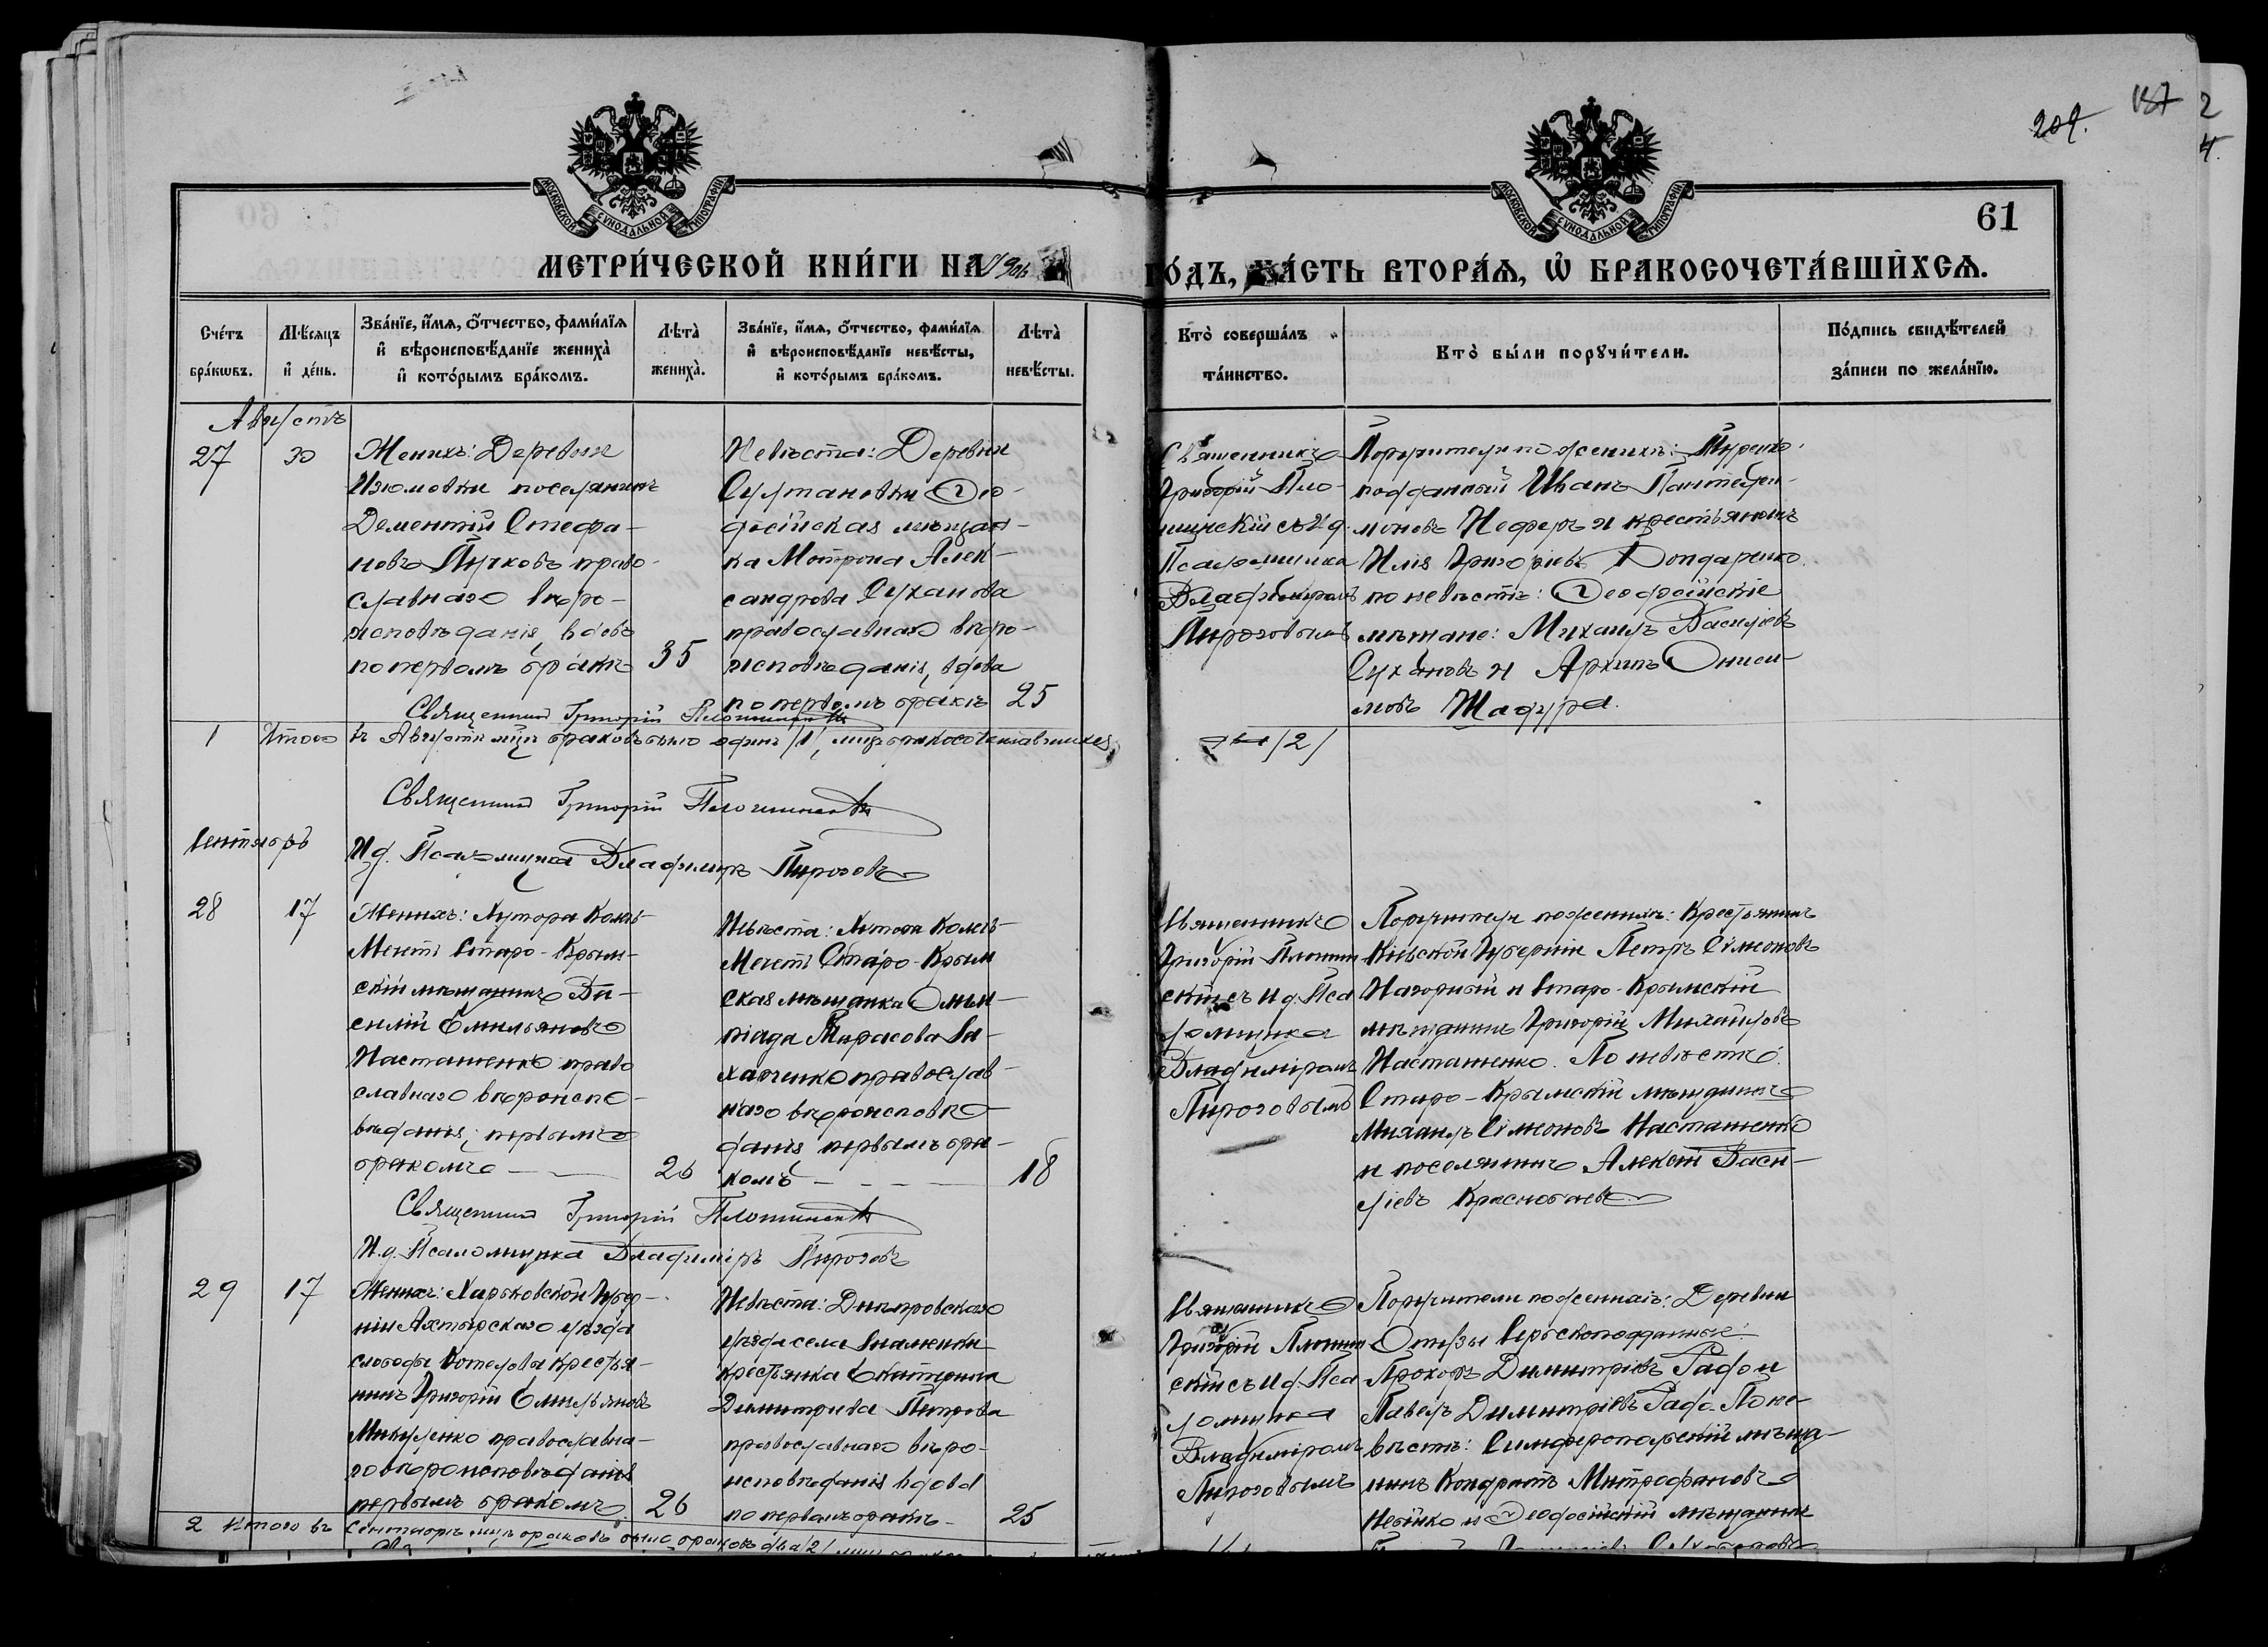 209.
187
2
4.
МОСКОВСКОЙ СѴНОДАЛЬНОЙ ТИПОГРАФІИ
МОСКОВСКОЙ СѴНОДАЛЬНОЙ ТИПОГРАФІИ
61
МЕТРИ́ЧЕСКОЙ КНИ́ГИ НА 1906
ГО́ДЪ, ЧА́СТЬ ВТОРА́Я, Ѡ҆ БРАКОСОЧЕТА́ВШИХСѦ.
Сче́тъ бра́кѡвъ.
Мѣ́сяцъ и҆ де́нь.
Зва́нїе, и҆́мѧ, ѻ҆́тчество, фами́лїѧ и҆ вѣроисповѣ́данїе жениха̀ и҆ кото́рымъ бра́комъ.
Лѣта̀ жениха̀.
Зва́нїе, и҆́мѧ, ѻ҆́тчество, фами́лїѧ и҆ вѣроисповѣ́данїе невѣ́сты, и҆ кото́рымъ бра́комъ.
Лѣта̀ невѣ́сты.
Кто̀ соверша́лъ та́инство.
Кто̀ бы́ли порꙋчи́тели.
По́дпись свидѣ́телей за́писи по жела́нїю.
Августъ
27
30
Женихъ: Деревни
Изюмовки поселянинъ
Дементій Стефа-
новъ Пучковъ право-
славнаго вѣро-
исповѣданія, вдовъ
по первомъ бракѣ
35
Невѣста: Деревни
Султановки Ѳео-
досійская мѣщан-
ка Мотрона Алек-
сандрова Суханова
православнаго вѣро-
исповѣданія, вдова
по первомъ бракѣ
25
Священникъ
Григорій Пло-
тинскій съ И.д.
Псаломщика
Владиміромъ
Пироговымъ
Поручители по женихѣ: Турецко-
подданный Иванъ Пантелей-
моновъ Неферъ и крестьянинъ
Илія Григорьевъ Бондаренко.
по невѣстѣ: Ѳеодосійскіе
мѣщане: Михаилъ Васильевъ
Сухановъ и Архипъ Ониси-
мовъ Шадура.
Священникъ Григорій Плотинскій
1 Итого въ Августѣ м-цѣ браковъ было одинъ /1/, лицъ бракосочетавшихся
два /2/
Священникъ Григорій Плотинскій
Сентябрь
И.д. Псаломщика Владиміръ Пироговъ
28
17
Женихъ: Хутора Колечь-
Мечеть Старо-Крым-
скій мѣщанинъ Ва-
силій Емельяновъ
Насташенко право
славнаго вѣроиспо-
вѣданія, первымъ
бракомъ
26
Невѣста: Хутора Колечь-
Мечеть Старо-Крым
ская мѣщанка Олим-
піада Тарасова За-
харченко православ-
наго вѣроисповѣ-
данія первымъ бра-
комъ
18
Священникъ
Григорій Плотин
скій съ И.д. Пса
ломщика
Владиміромъ
Пироговымъ
Поручители по женихѣ: Крестьянинъ
Кіевской Губерніи Петръ Симеоновъ
Нагорный и Старо-Крымскій
мѣщанинъ Григорій Михайловъ
Насташенко. По невѣстѣ:
Старо-Крымскій мѣщанинъ
Михаилъ Симеоновъ Насташенко
и поселянинъ Алексѣй Васи-
льевъ Краснобаевъ
Священникъ Григорій Плотинскій
И.д. Псаломщика Владиміръ Пироговъ
29
17
Женихъ: Харьковской Губер-
ніи Ахтырскаго уѣзда
слободы Котельвы крестья-
нинъ Григорій Емельяновъ
Микуленко православна-
го вѣроисповѣданія
первымъ бракомъ.
26
Невѣста: Днѣпровскаго
уѣзда села Знаменки
крестьянка Екатерина
Димитріева Петрова
православнаго вѣро-
исповѣданія вдова
по первомъ бракѣ
25
Священникъ
Григорій Плотин
скій съ И.д. Пса
ломщика
Владиміромъ
Пироговымъ
Поручители по женихѣ: Деревни
Отузы
Прохоръ Димитріевъ Радо и
Павелъ Димитріевъ Радо. По не-
вѣстѣ: Симферопольскій мѣща-
нинъ Кондратъ Митрофановъ
и Ѳеодосійскій мѣщанинъ
2 Итого въ Сентябрѣ м-цѣ браковъ было браковъ два /2/